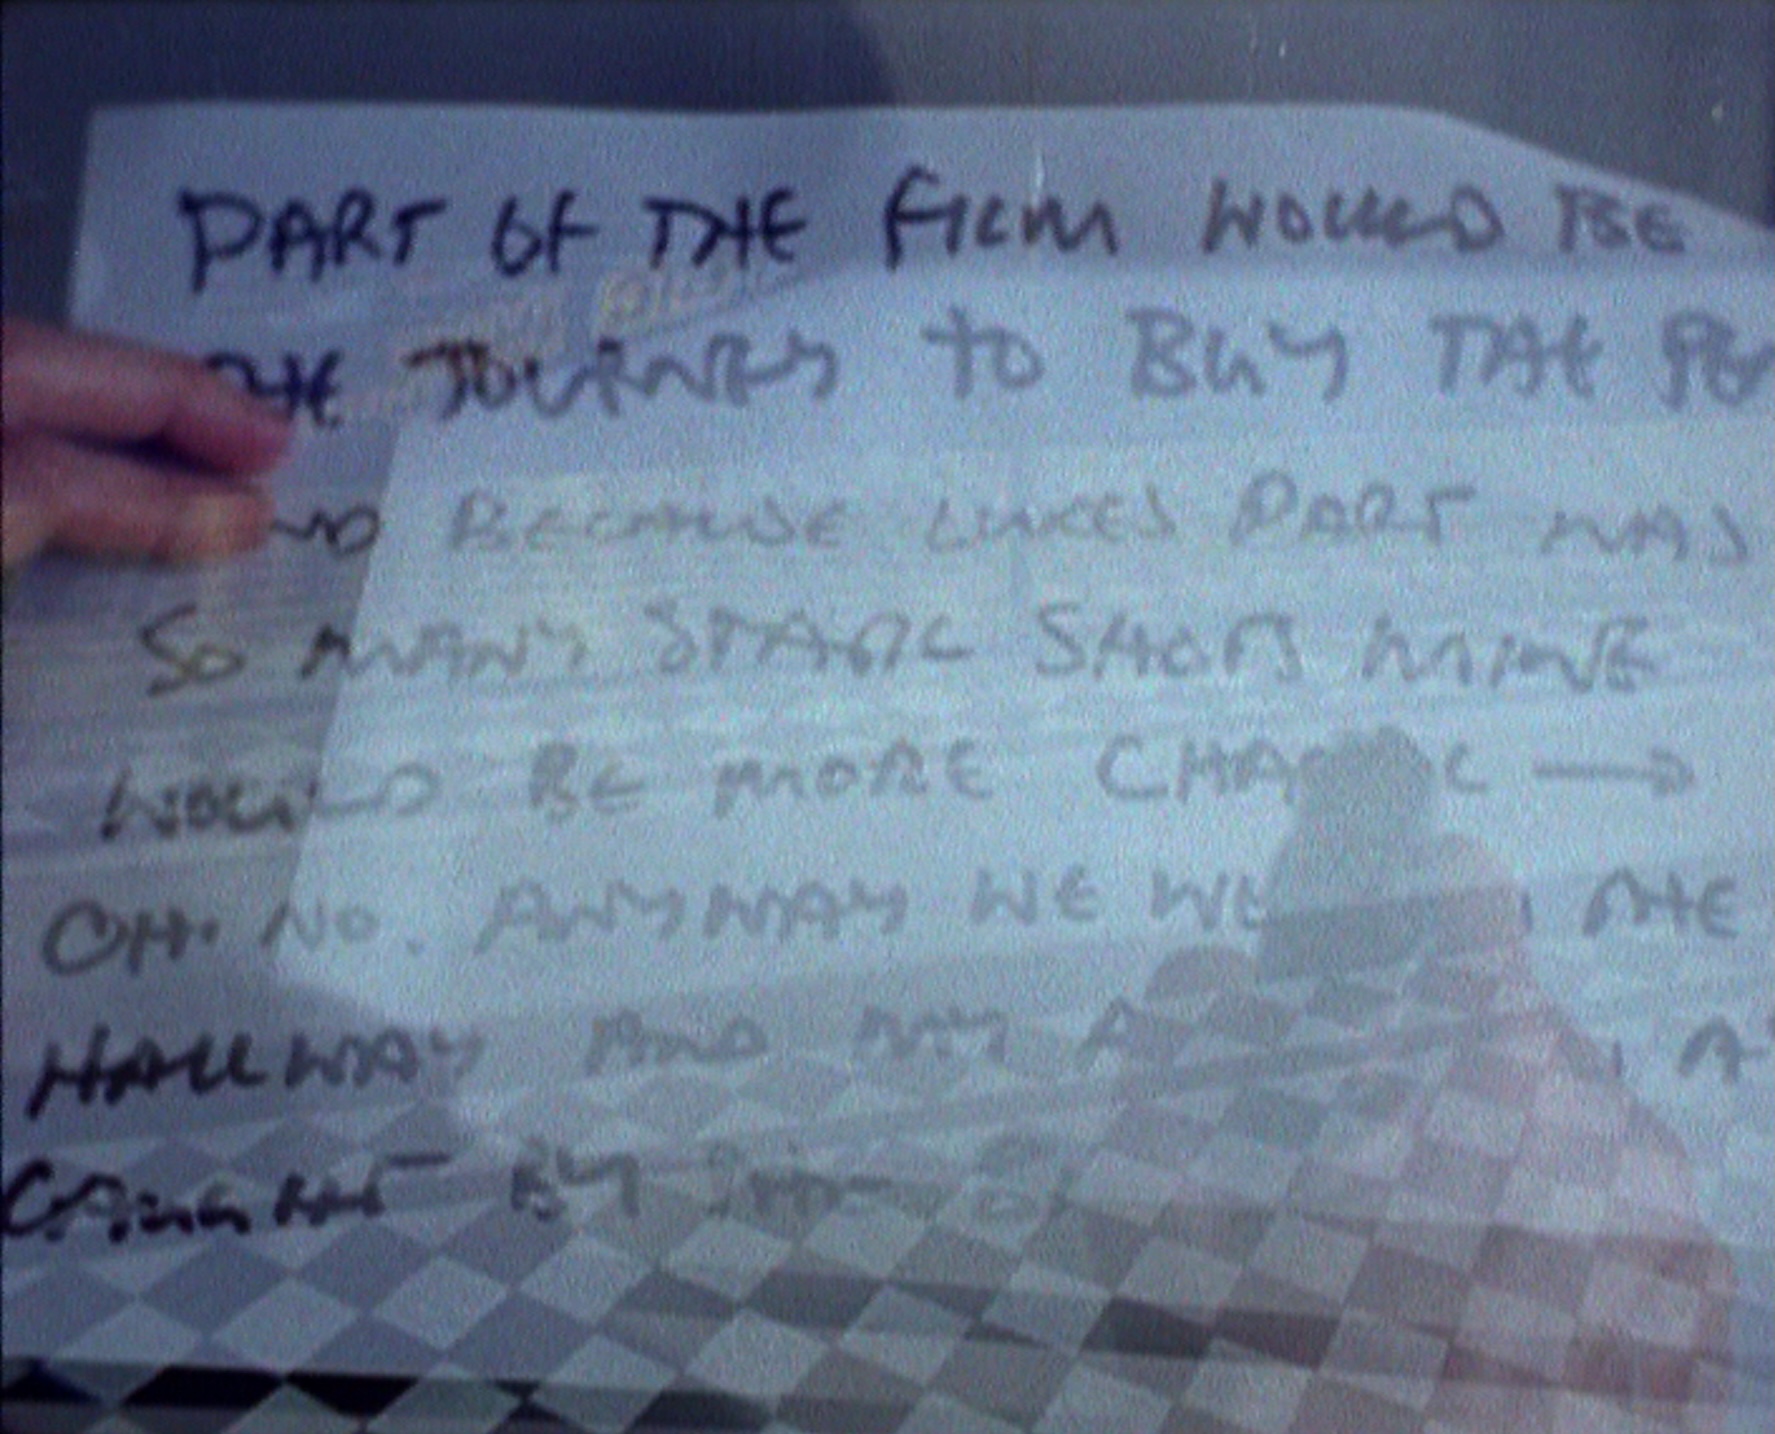 PART OF THE FILM WOULD BE
THE JOURNEY TO BUY THE
BECAUSE LUKES PART WAS
SO MANY STATIC SHOTS MINE
WOULD BE MORE →
OH. NO. ANYMAY WE THE
HALLWAY AND MY
CAUGHT BY